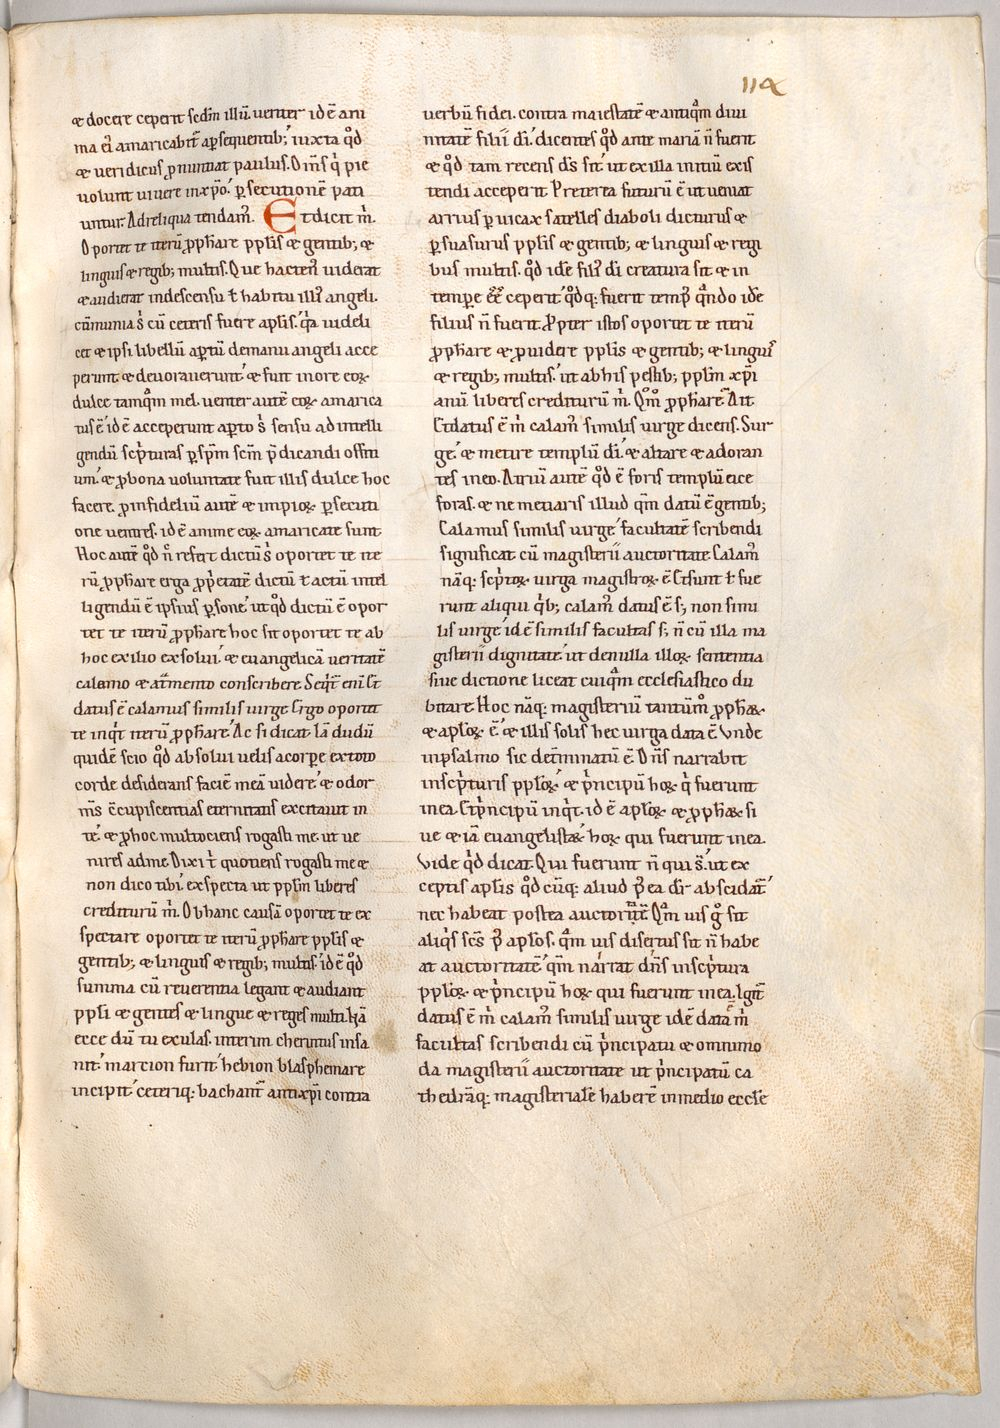 114
& docere ceperit scdm illū. uenter id ē ani
ma ei amaricabit̄ a psequentib; iuxta qd̄
& ueridicus pnuntiat paulus. Om̄s q̇ pie
uolunt uiuere in xp̄o. psecutionē pati
untur. Ad reliqua tendam̄. Et dicit m̄.
Oportet te iterū pphare pplis & gentib; &
linguis & regib; multis. Que hacten' uiderat
& audierat in descensu ł habitu illi' angeli.
cōmunia s̄ cū ceteris fuere aplis. q̇a uideli
cet & ipsi libellū aptū de manu angeli acce
perunt. & deuorauerunt. & fuit in ore eoꝝ
dulce tamqm̄ mel. uenter autē eoꝝ amarica
tus ē. id ē acceperunt apto s̄ sensu ad intelli
gendū scpturas p spm scm̄ pdicandi offiti
um. & p bona uoluntate fuit illis dulce hoc
facere. p infideliū autē & impioꝝ psecuti
one uentres. id ē anime eoꝝ amaricate sunt.
Hoc autē qd̄ n̄ refert dictū s̄ oportet te ite
rū pphare erga ppetatē dictū ł actū intel
ligendū ē ipsius psone. ut qd̄ dictū ē opor
tet te iterū pphare hoc sit oportet te ab
hoc exilio exsolui. & euangelicā ueritatē
calamo & atmento conscribere. Seqt̄ eni. Et
datus ē calamus similis uirge. Ergo oportet
te inqt iterū pphare. Ac si dicat. Iā dudū
quidē scio qd̄ absolui uelis a corpe ex toto
corde desiderans faciē meā uidere. & odor
m̄s ccupiscentias eternitatis excitauit in
te. & p hoc multociens rogasti me. ut ue
nires ad me. Dixi t' quotiens rogasti me &
non dico tibi. exspecta ut pplm liberes
crediturū m̄. Ob hanc causā oportet te ex
spectare oportet te iterū pphare pplis &
gentib; & linguis & regib; multis. id ē qd̄
summa cū reuerentia legant & audiant
ppli & gentes & lingue & reges multi. Nā
ecce dū tu exulas. interim cherintus insa
nit. marcion furit. hebion blasphemare
incipit. ceteriq: bachant̄ antixpi contra
uerbū fidei. contra maiestatē & antiqm̄ diui
nitatē filii di. dicentes qd̄ ante mariā n̄ fuerit
& qd̄ tam recens ds sit. ut ex illa initiū exis
tendi acceperit. Preterea futurū ē ut ueniat
arrius puicax satelles diaboli dicturus &
psuasurus pplis & gentib; & linguis & regi
bus multis. qd̄ idē fili' di creatura sit & in
tempe eē ceperit. qdq: fuerit temp' qn̄do idē
filius n̄ fuerit. Ppter istos oportet te iterū
pphare & puidere pplis & gentib; & lingui'
& regib; multis. ut ab his pestib; pplm xpi
anū liberes crediturū m̄. Qm̄ pphare. Ait
Et datus ē m̄ calam' similis uirge dicens. Sur
ge. & metire templū di. & altare & adoran
tes in eo. Atriū autē qd̄ ē foris templū eice
foras. & ne metiaris illud qm̄ datū ē gentib;
Calamus similis uirge. facultatē scribendi
significat cū magisterii auctoritate. Calam'
nāq: scptoꝝ. uirga magistroꝝ ē. Et sunt ł fue
runt aliqui q̇b; calam' datus ē s; non simi
lis uirge. id ē similis facultas s; n̄ cū illa ma
gisterii dignitate. ut de nulla illoꝝ sententia
siue dictione liceat cuiqm̄ ecclesiastico du
bitare. Hoc nāq: magisteriū tantūm̄ pphaꝝ
& aploꝝ ē. & illis solis hec uirga data ē. Vnde
in psalmo sic det̄minatū ē. Dn̄s narrabit
in scpturis pploꝝ. & pncipū hoꝝ q̇ fuerunt
in ea. Et pncipū inqt. id ē aploꝝ & pphaꝝ si
ue & iā euangelistaꝝ. hoꝝ qui fuerunt in ea.
Vide qd̄ dicat. Qui fuerunt n̄ qui s̄. ut ex
ceptis aplis qd̄ cūq: aliud p' ea dr abscidat̄
nec habeat postea auctoritatē. Qm̄ uis g° sit
aliq̇s scs p' aplos. qm̄ uis disertus sit n̄ habe
at auctoritatē. qm̄ narrat dn̄s in scptura
pploꝝ & pncipū hoꝝ qui fuerunt in ea. Igit̄
datus ē m̄ calam' similis uirge idē data ē m̄
facultas scribendi cū pncipatu & omnimo
da magisterii auctoritate ut pncipatū ca
thedrāq: magisterialē haberē in medio eccle